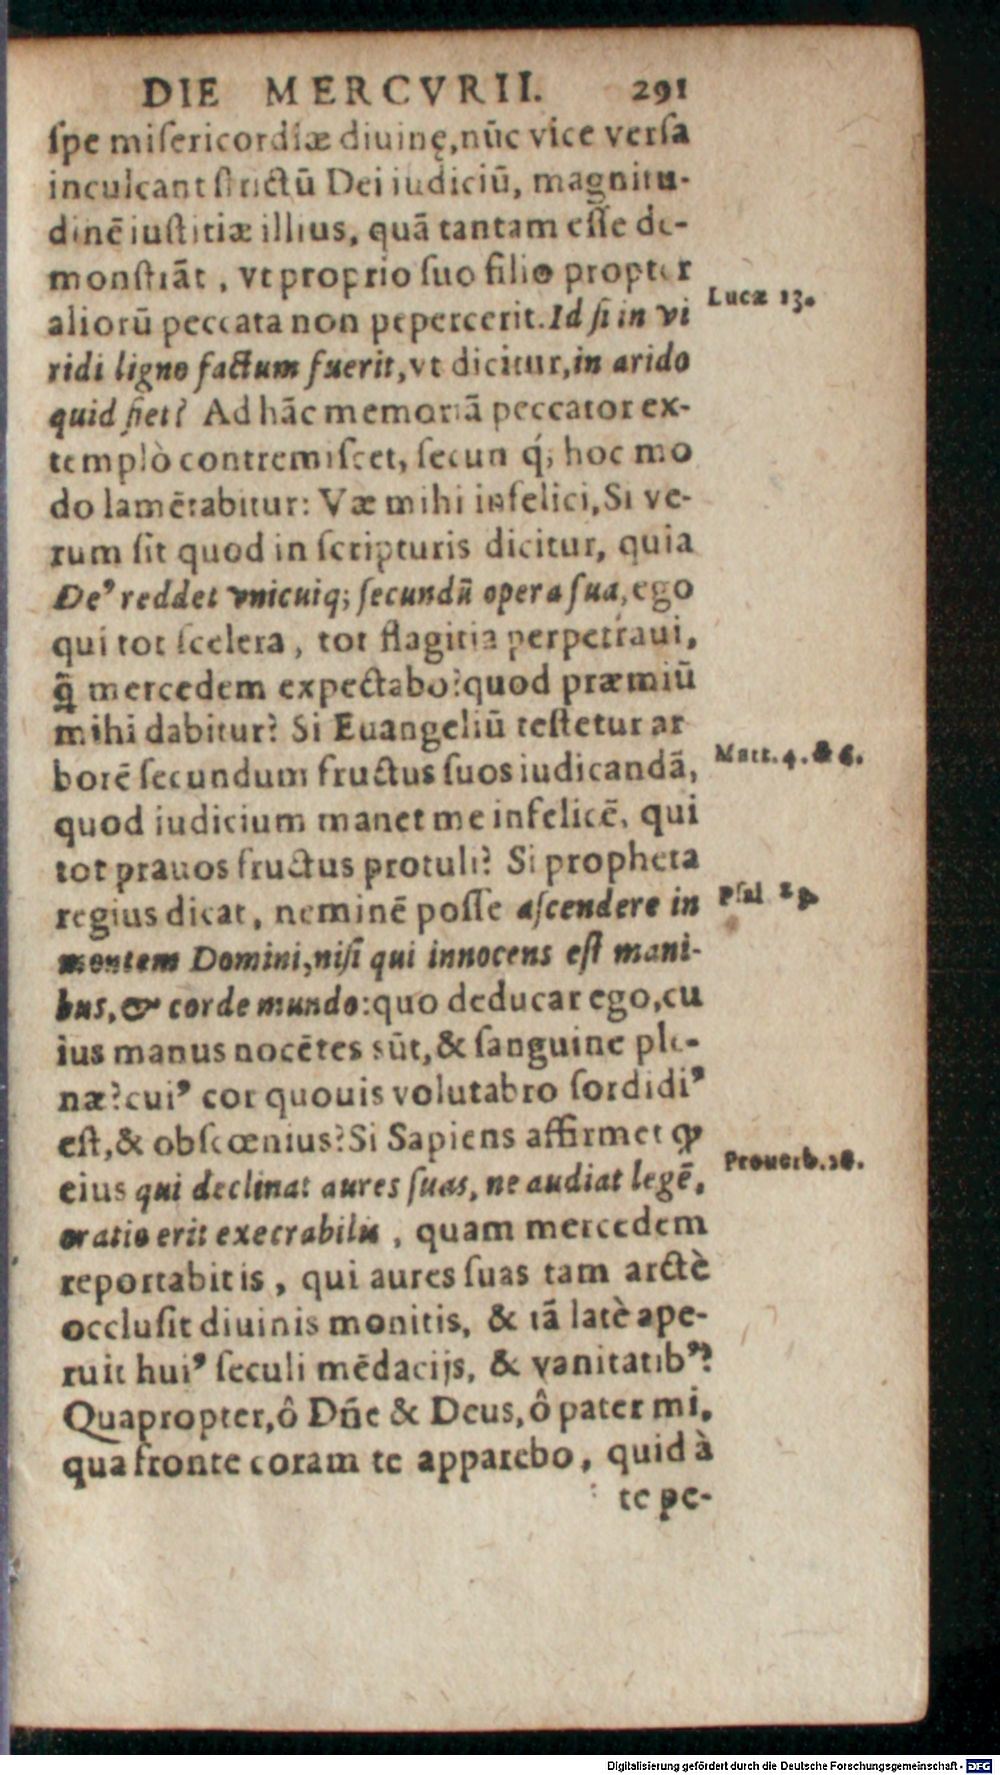 DIE MERCVRII. 291
ſpe miſericordiæ diuinę, nūc vice verſa
inculcant ſtrictū Dei iudiciū, magnitu-
dinē iuſtitiæ illius, quā tantam eſſe de-
monſtrāt, vt proprio ſuo filio propter
aliorū peccata non pepercerit. Id ſi in vi
Lucæ 13.
ridi ligno factum fuerit, vt dicitur, in arido
quid fiet? Ad hāc memoriā peccator ex-
templò contremiſcet, ſecum q́; hoc mo
do lamētabitur: Væ mihi infelici, Si ve-
rum ſit quod in ſcripturis dicitur, quia
De' reddet vnicuiq; ſecundū opera ſua, ego
qui tot ſcelera, tot flagitia perpetraui,
q̄ mercedem expectabo? quod præmiū
mihi dabitur? Si Euangeliū teſtetur ar
Matt. 4. & 6.
borē ſecundum fructus ſuos iudicandā,
quod iudicium manet me infelicē, qui
tot prauos fructus protuli? Si propheta
regius dicat, neminē poſſe aſcendere in
Pſal
montem Domini, niſi qui innocens eſt mani-
bus, & corde mundo: quo deducar ego, cu
ius manus nocētes sūt, & ſanguine ple-
næ? cui' cor quouis volutabro ſordidi'
eſt, & obſcœnius? Si Sapiens affirmet ꝙ
Prouerb. 28.
eius qui declinat aures ſuas, ne audiat legē,
oratio erit execrabilis, quam mercedem
reportabitis, qui aures ſuas tam arctè
occluſit diuinis monitis, & tā latè ape-
ruit hui' ſeculi mēdacijs, & vanitatib'?
Quapropter, ô Dñe & Deus, ô pater mi,
qua fronte coram te apparebo, quid à
te pe-
Digitalisierung gefördert durch die Deutsche Forschungsgemeinschaft - DFG